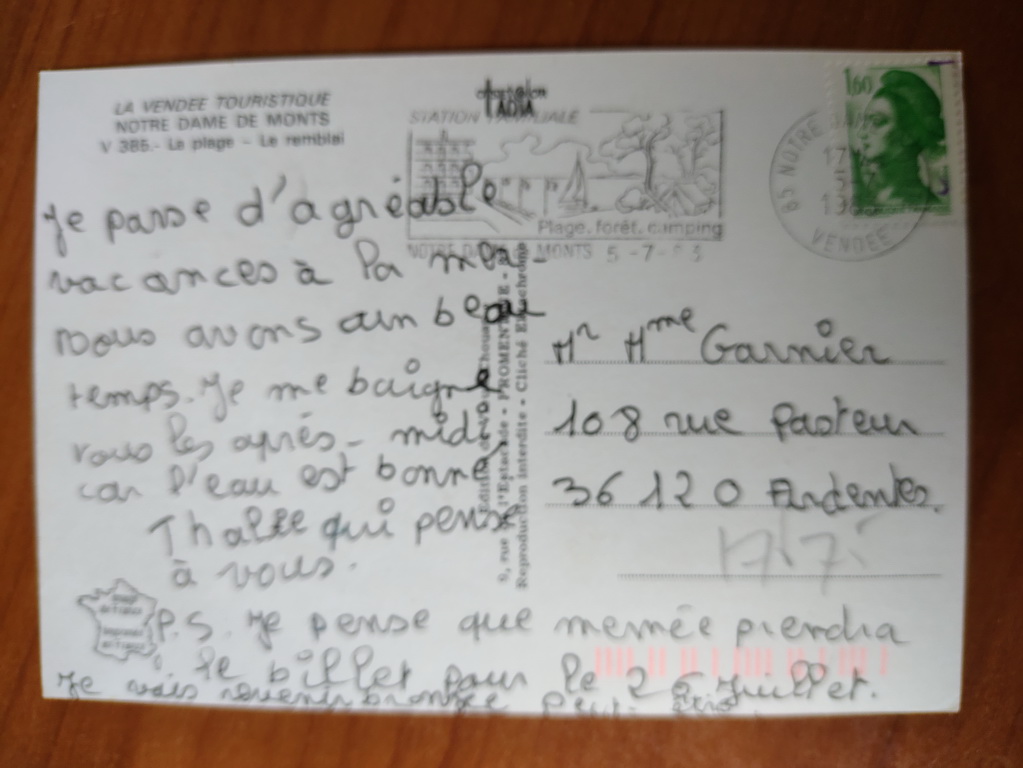 LA VENDEE TOURISTIQUE
NOTRE DAME DE MONTS
V 385.- La plage - Le remblai
STATION FAMILIALE
Plage, forêt, camping
NOTRE DAME MONTS 5-7-83
1,60
85 NOTRE
17
VENDEE
Je passe d'agréable
vacances à la mer-
nous avons un beau
temps. Je me baigne
tous les après-midi
car l'eau est bonne
qui pense
à vous.
P.S. Je pense que memée prendra
le billet pour le 26 Juillet.
Je vais revenir bronzée peut-
Mr Mme Garnier
108 rue Pasteur
36120 Ardentes.
rue de l'Estacade - PROMENTINE -
Reproduction interdite - Cliché